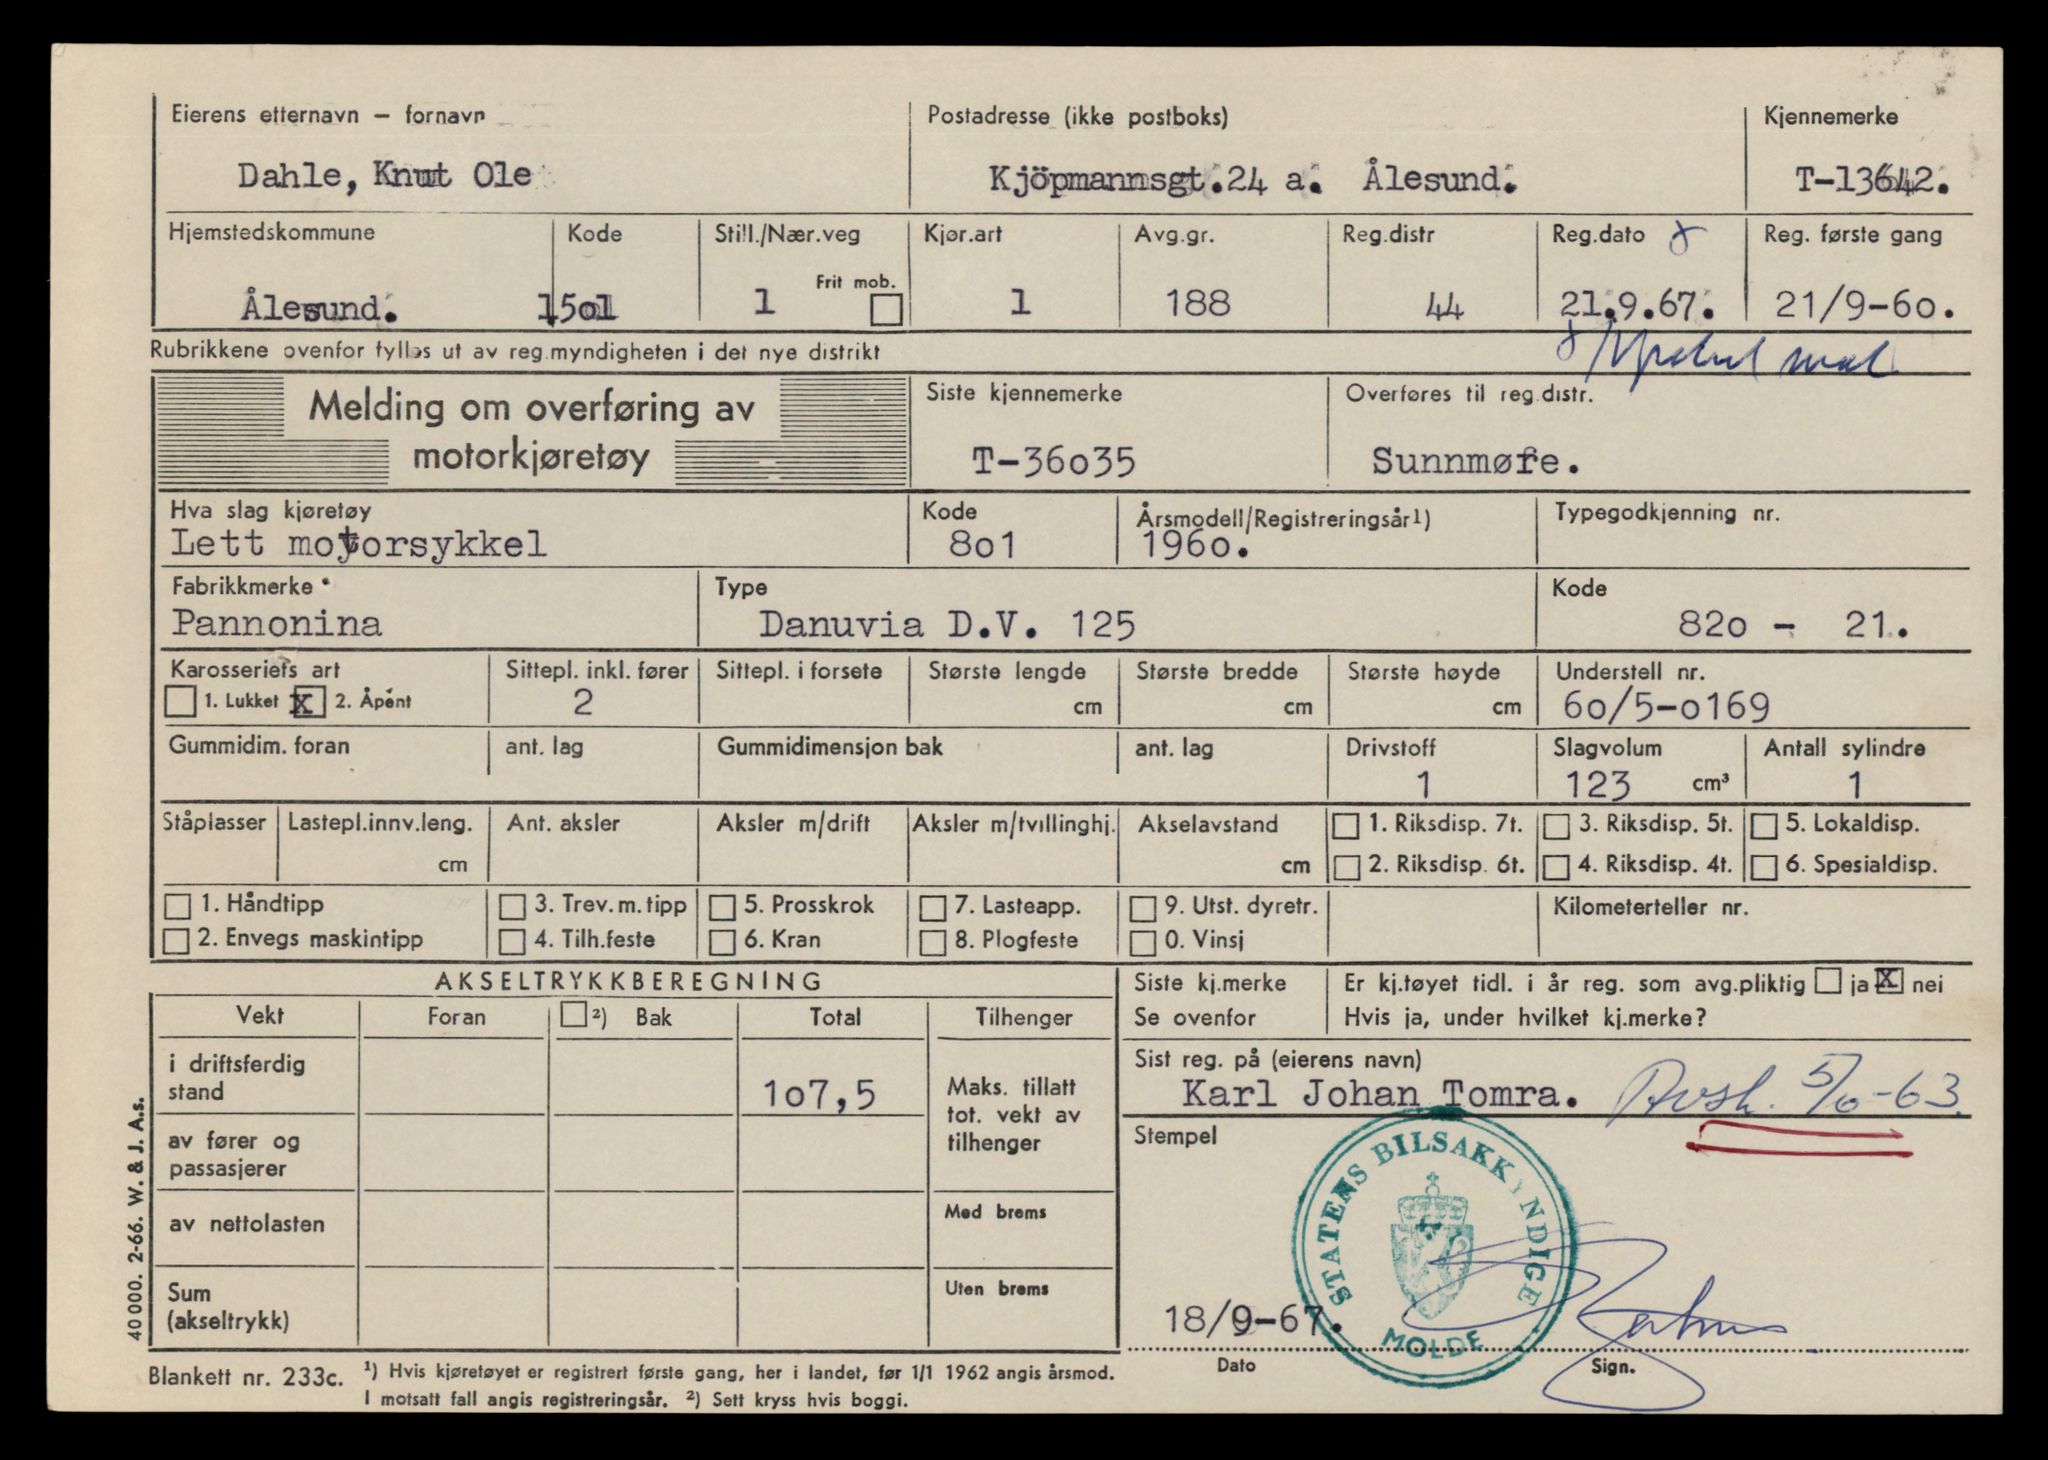 Eierens etternavn – fornavn
Postadresse (ikke postboks)
Kjennemerke
Dahle, Knut Ole
Kjöpmannsgt.24 a. Ålesund.
T-13642.
Hjemstedskommune
Kode
Still./Nær.veg
Kjør.art
Avg.gr.
Reg.distr
Reg.dato
Reg. første gang
Frit mob.
Ålesund.
1501
1
1
188
44
21.9.67.
21/9-60.
Rubrikkene ovenfor fylles ut av reg.myndigheten i det nye distrikt
Melding om overføring av
motorkjøretøy
Siste kjennemerke
Overføres til reg.distr.
T-36035
Sunnmøre.
Hva slag kjøretøy
Kode
Årsmodell/Registreringsår1)
Typegodkjenning nr.
Lett motorsykkel
801
1960.
Fabrikkmerke
Type
Kode
Pannonina
Danuvia D.V. 125
820 - 21.
Karosseriets art
Sittepl. inkl. fører
Sittepl. i forsete
Største lengde
Største bredde
Største høyde
Understell nr.
1. Lukket X 2. Åpent
2
cm
cm
cm
60/5-0169
Gummidim. foran
ant. lag
Gummidimensjon bak
ant. lag
Drivstoff
Slagvolum
Antall sylindre
1
123 cm³
1
Ståplasser
Lastepl.innv.leng.
Ant. aksler
Aksler m/drift
Aksler m/tvillinghj.
Akselavstand
1. Riksdisp. 7t.
3. Riksdisp. 5t.
5. Lokaldisp.
cm
cm
2. Riksdisp. 6t.
4. Riksdisp. 4t.
6. Spesialdisp.
1. Håndtipp
3. Trev.m.tipp
5. Prosskrok
7. Lasteapp.
9. Utst. dyretr.
Kilometerteller nr.
2. Envegs maskintipp
4. Tilh.feste
6. Kran
8. Plogfeste
0. Vinsj
AKSELTRYKKBEREGNING
Siste kj.merke
Er kj.tøyet tidl. i år reg. som avg.pliktig ja X nei
Se ovenfor
Hvis ja, under hvilket kj.merke?
Vekt
Foran
2) Bak
Total
Tilhenger
i driftsferdig
stand
107,5
Maks. tillatt
tot. vekt av
tilhenger
Sist reg. på (eierens navn)
Karl Johan Tomra.
Avsk. 5/10-63.
av fører og
passasjerer
Stempel
STATENS BILSAKKYNDIGE
MOLDE
av nettolasten
Med brems
Sum
(akseltrykk)
Uten brems
18/9-67.
Dato
Sign.
40000. 2-66. W. & J. A.s.
Blankett nr. 233c.
1) Hvis kjøretøyet er registrert første gang, her i landet, før 1/1 1962 angis årsmod.
I motsatt fall angis registreringsår. 2) Sett kryss hvis boggi.